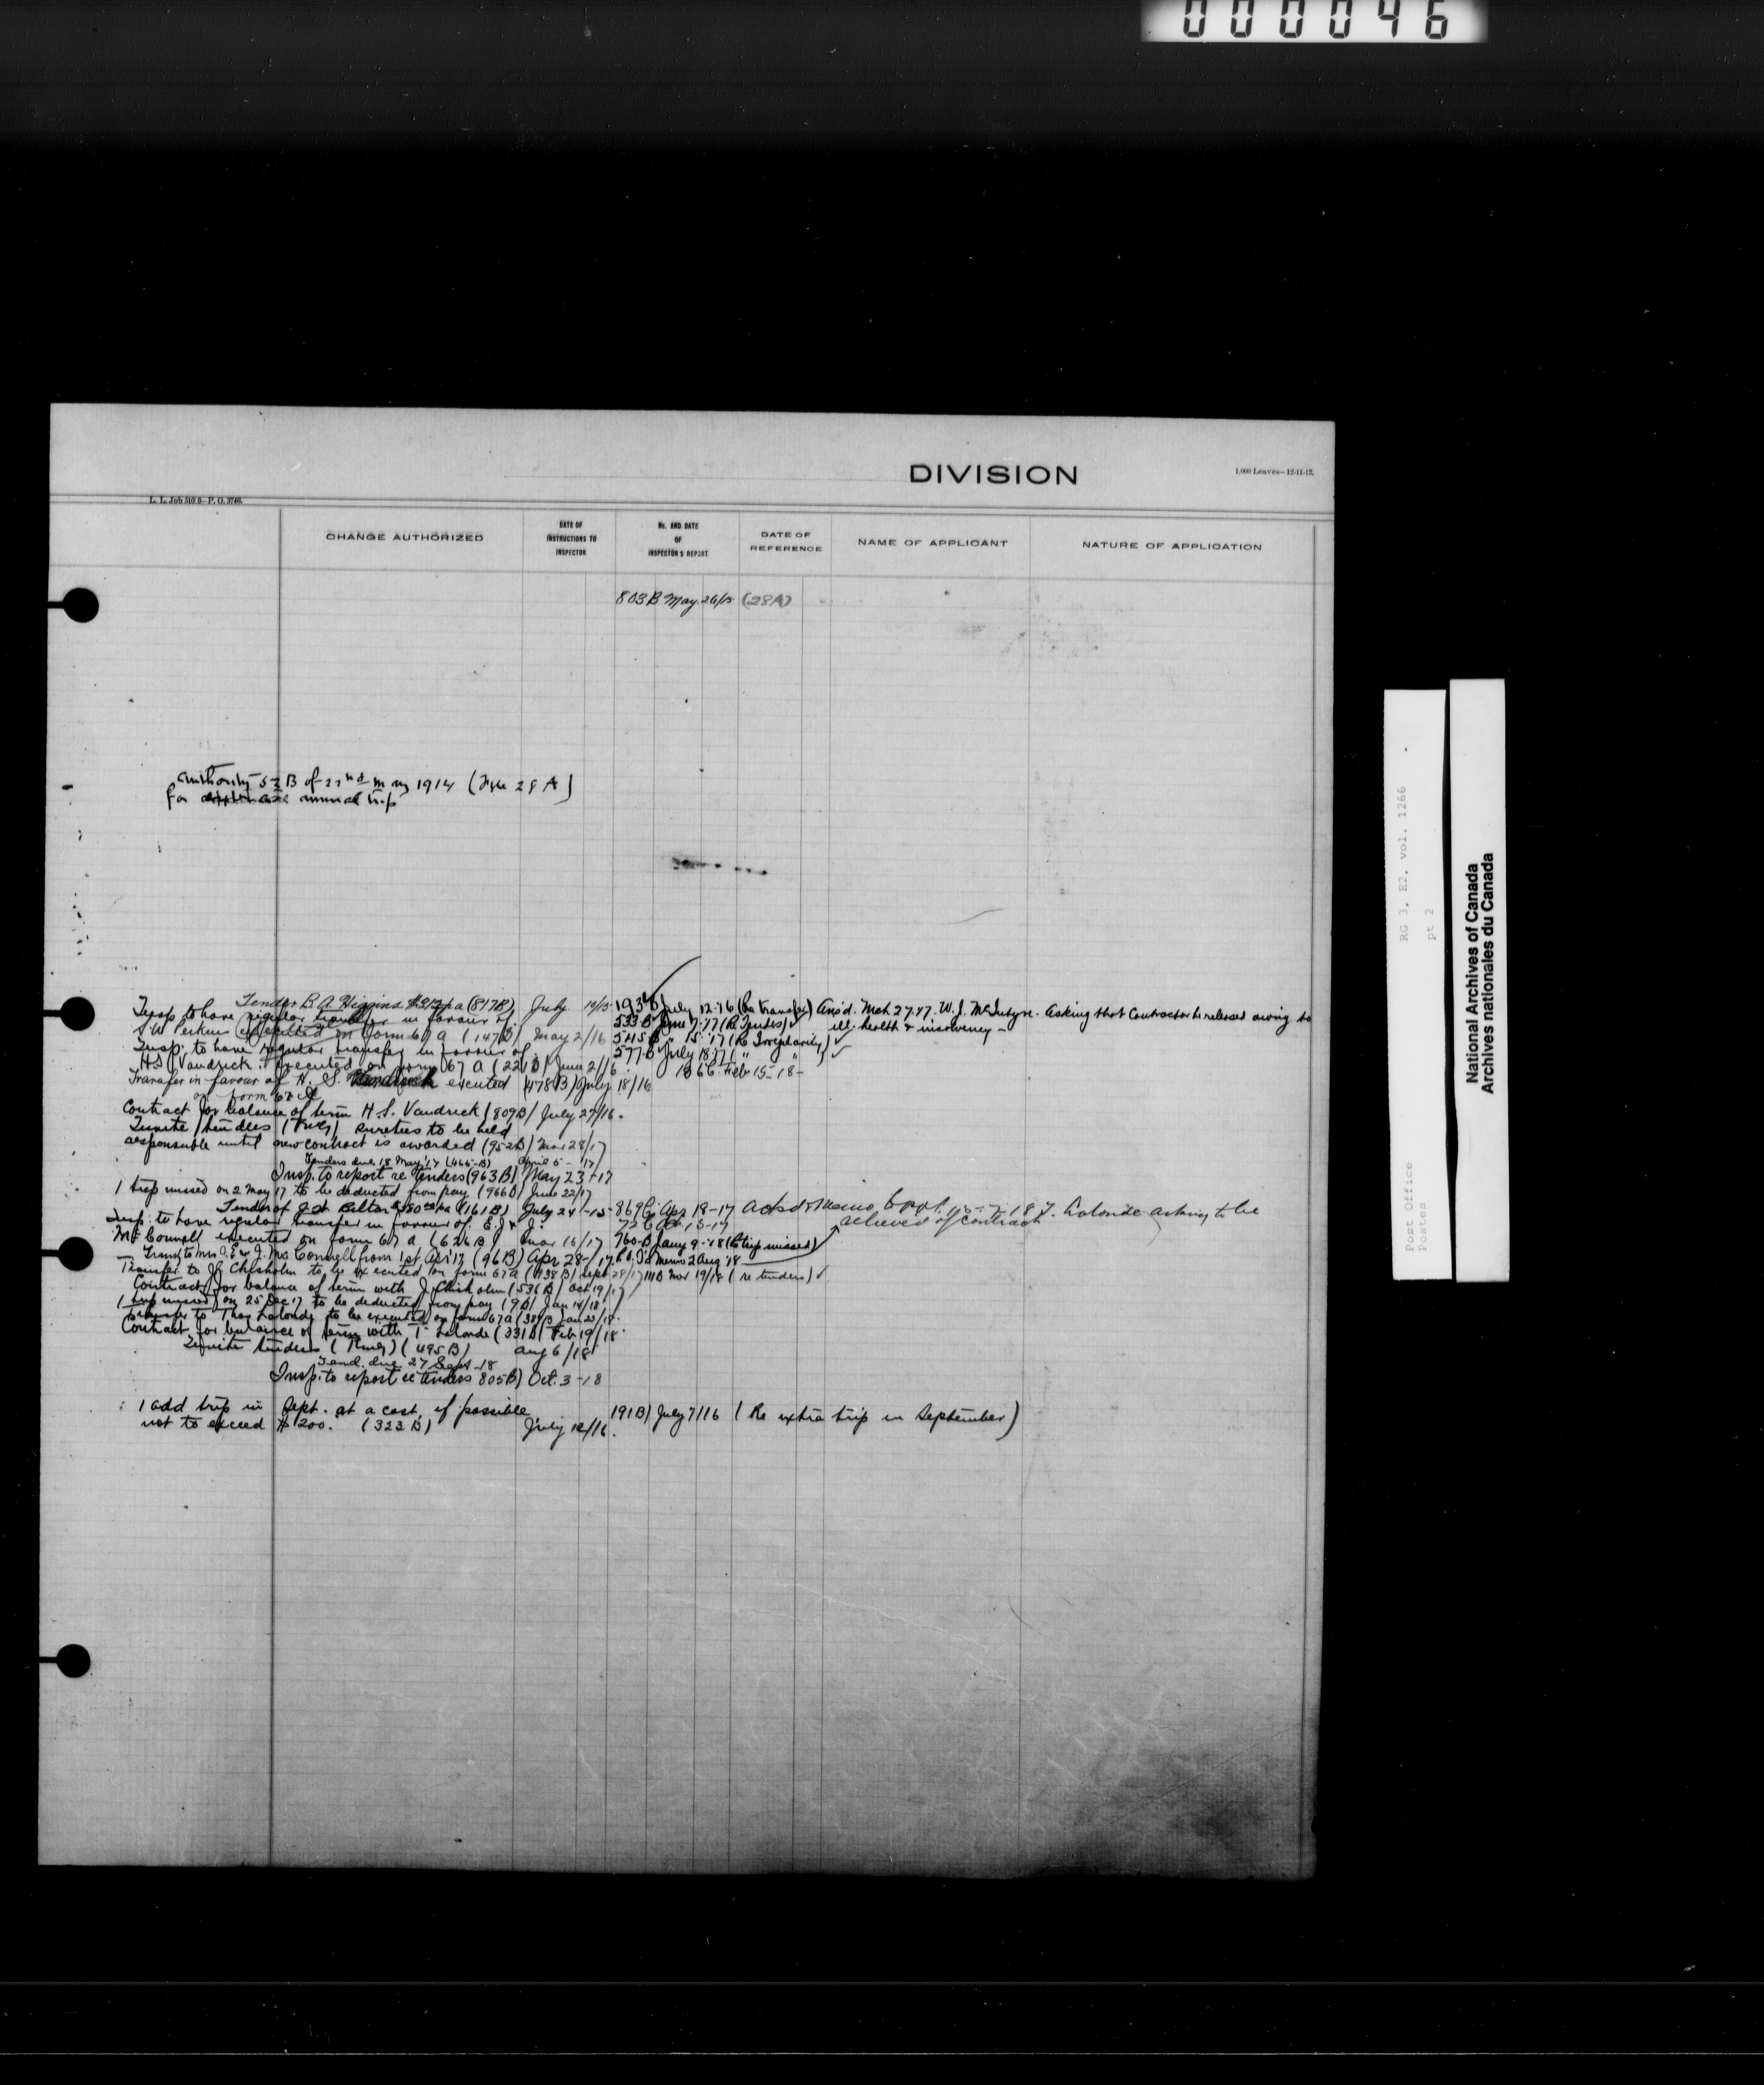 000046
DIVISION
1,000 Leaves—12-11-13.
L. L. Job 510 9—P. O. 3746.
CHANGE AUTHORIZED
DATE OF INSTRUCTIONS TO INSPECTOR
No. AND DATE OF INSPECTOR'S REPORT
DATE OF REFERENCE
NAME OF APPLICANT
NATURE OF APPLICATION
803 B May 26/13 (28A)
Authority 52 B of 22nd May 1914 (File 28 A)
for annual trip
Tender B. A. Higgins (817B) July 10/15
193 B July 12-16 (Re transfer) Ans'd. Mch 27-17. W. J. McIntyre - Asking that Contractor be released owing to
ill health & insolvency -
Insp to have regular transfer in favour of
533 B June 7-17 (Re Tenders) ✓
S. W. Perkins executed on Form 67 a (147 B) May 2/16
545 B " 15-17 (Re Irregularity) ✓
Insp. to have regular transfer in favour of
577 B July 18-17 ( " " ) ✓
H S Vandrick executed on form 67 a (221 B) June 2/16
186 C. Feb 15-18-
Transfer in favour of H. S. Vandrick executed (478 B) July 18/16
on form 67 a
Contract for balance of term H. S. Vandrick (809 B) July 27/16.
Invite tenders (Reg) sureties to be held
responsible until new contract is awarded (952 B) Mar 28/17
Tenders due 18 May '17 (466-B) April 5-'17
Insp. to report re tenders (963 B) May 23-17
1 trip missed on 2 May 17 to be deducted from pay (966 B) June 22/17
Tender of J. A. Belton (161 B) July 24-15
869 B Apr 18-17 Acks & Memo T. Lalonde asking to be
relieved of contract
Insp. to have regular transfer in favour of E. J. & J.
72 B Oct. 16-17
McConnell executed on form 67 a (626 B) Mar 16/17
760-B Jany 9-'18 (Re trip missed)
Trans to Mrs O. E. & J. McConnell from 1st Apr '17 (96 B) Apr 28-17
Memo 2 Aug '18
Transfer to J. Chisholm to be executed on form 67 a (938 B) Sept 28/17
111 B Nov 19/18 (re tenders) ✓
Contract for balance of term with J. Chisholm (536 B) Oct 19/17
1 trip missed on 25 Dec 17 to be deducted from pay (9 B) Jan 14/18
Transfer to Thos Lalonde to be executed on form 67 a (389 B) Jan 23/18
Contract for balance of term with T. Lalonde (331 B) Feb 19/18
Invite tenders (Reg) (495 B) Aug 6/18
Tend. due 27 Sept-18
Insp. to report re tenders 805 B) Oct. 3-18
1 add trip in Sept. at a cost if possible
191 B) July 7/16 (Re extra trip in September)
not to exceed $200. (323 B) July 12/16.
RG 3, E2, vol. 1266
pt 2
Post Office
Postes
National Archives of Canada
Archives nationales du Canada